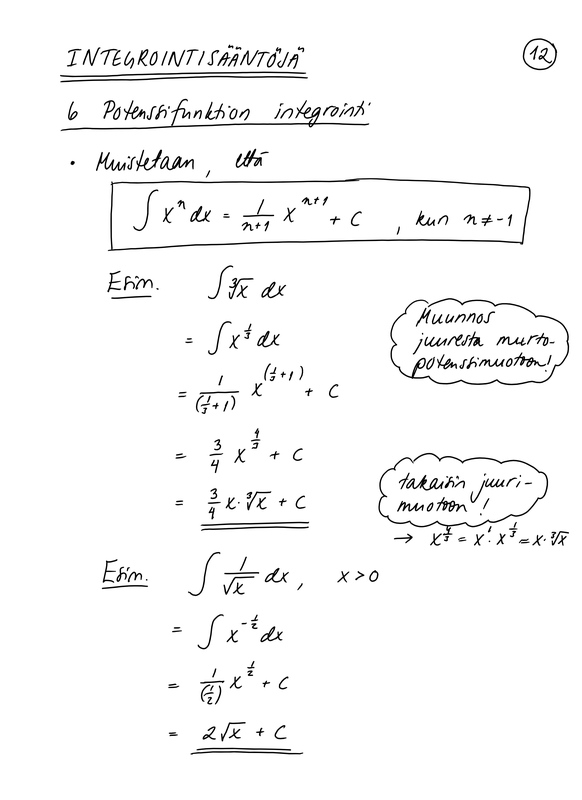 INTEGROINTISÄÄNTÖJÄ
12
6 Potenssifunktion integrointi
• Muistetaan, että
∫ xⁿ dx = 1/(n+1) x^(n+1) + C , kun n ≠ -1
Esim. ∫ ∛x dx
= ∫ x^(1/3) dx
Muunnos
juuresta murto-
potenssimuotoon!
= 1/(1/3+1) x^(1/3+1) + C
= 3/4 x^(4/3) + C
= 3/4 x · ∛x + C
takaisin juuri-
muotoon!
→ x^(4/3) = x¹ · x^(1/3) = x · ∛x
Esim. ∫ 1/√x dx, x > 0
= ∫ x^(-1/2) dx
= 1/(1/2) x^(1/2) + C
= 2√x + C